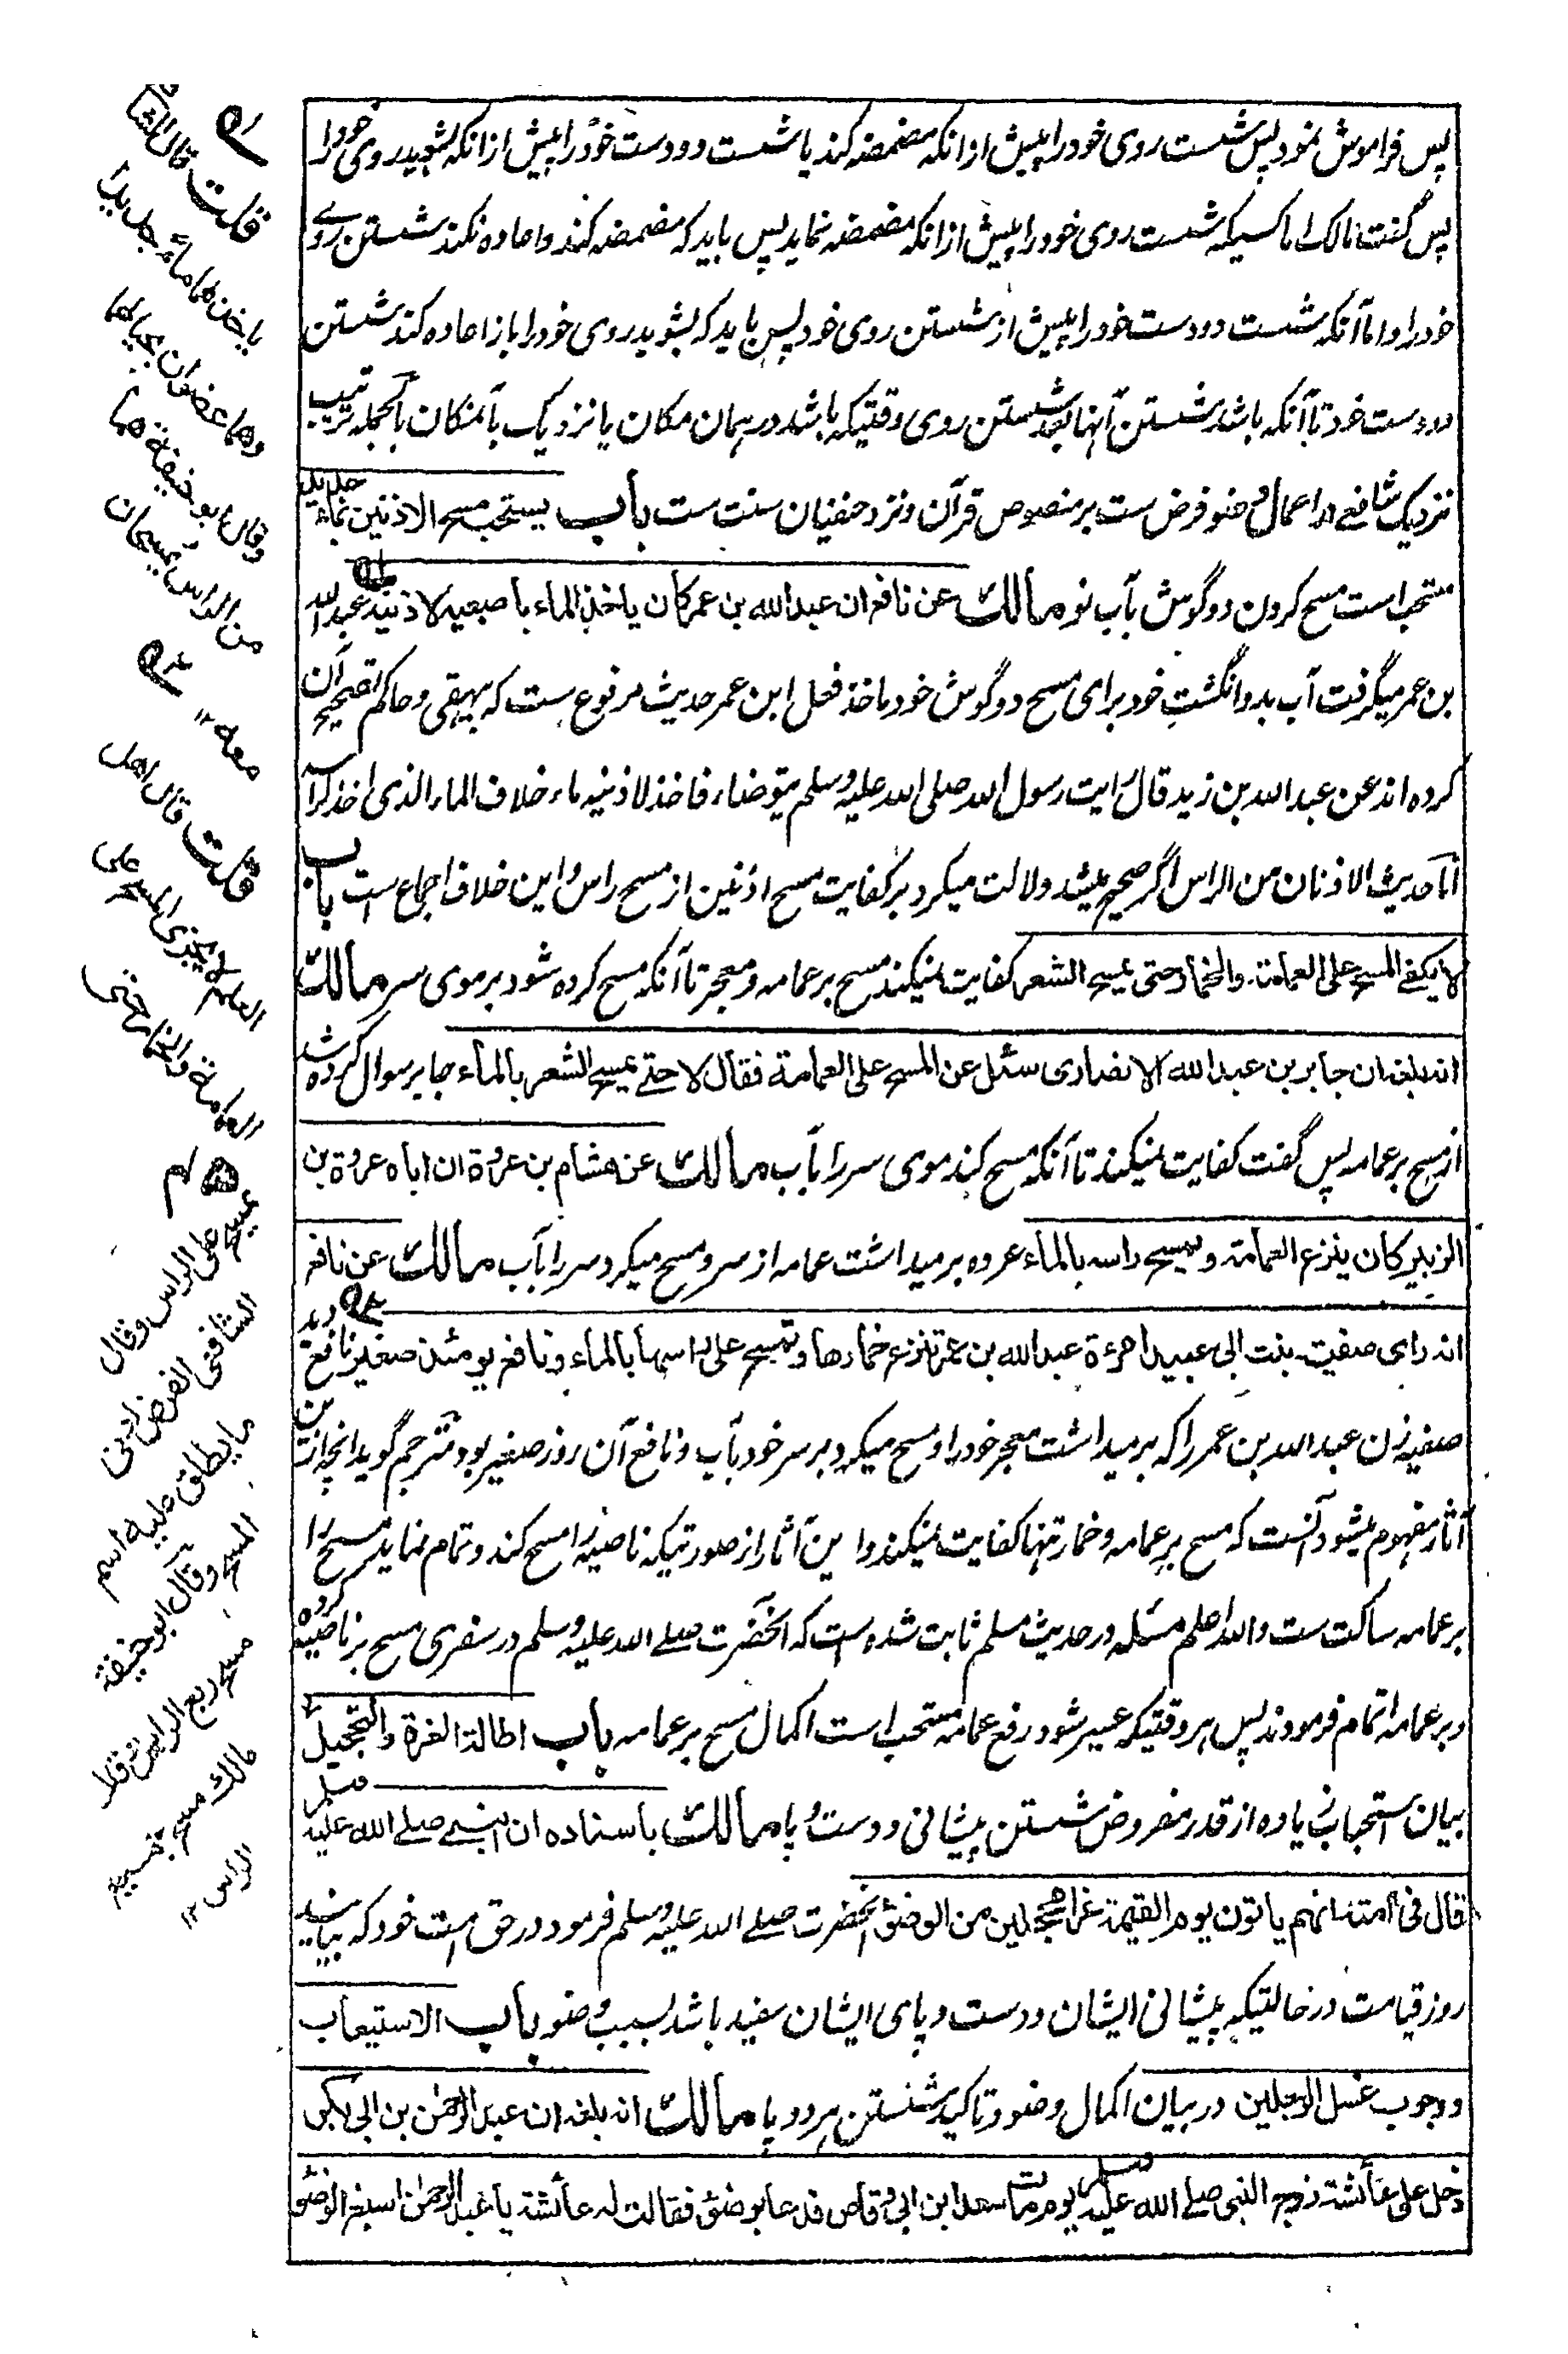 پس فراموش نمود پس شست روی خود را پیش ازانکه مضمضه کند یا شست دو دست خود را پیش ازانکه بشوید روی خود را
پس گفت مالک اما کسیکه شست روی خود را پیش ازانکه مضمضه نماید پس باید که مضمضه کند و اعاده نکند شستن روے
خود را و اما آنکه شست دو دست خود را پیش از شستن روی خود پس باید که بشوید روی خود را باز اعاده کند شستن
دو دست خود تا آنکه باشد شستن آنها بعد شستن روی وقتیکه باشد در همان مکان یا نزدیک بآنمکان بالجمله ترتیب
نزدیک شافعے در اعمال وضو فرض ست بر منصوص قرآن و نزد حنفیان سنت ست باب یستحب مسح الاذنین بماء جدید
مستحب است مسح کردن دو گوش بآب نو مالك عن نافع ان عبد الله بن عمر كان ياخذ الماء باصبعيه لاذنيه عبد الله
بن عمر میگرفت آب بدو انگشت خود برای مسح دو گوش خود ماخذ فعل ابن عمر حدیث مرفوع ست که بیهقی و حاکم تصحیح آن
کرده اند عن عبد الله بن زید قال رایت رسول الله صلی الله علیه وسلم یتوضاء فاخذ لاذنیه ماء خلاف الماء الذی اخذ لراسه
اما حدیث الاذنان من الراس اگر صحیح میشد دلالت میکرد بر کفایت مسح اذنین از مسح راس و این خلاف اجماع است باب
لا يكفے المسح على العمامة والخمار حتى يمسح الشعر کفایت نمیکند مسح بر عمامه و معجر تا آنکه مسح کرده شود بر موی سر مالك
انه بلغه ان جابر بن عبد الله الانصارى سئل عن المسح على العمامة فقال لا حتے يمسح الشعر بالماء جابر سوال کرده شد
از مسح بر عمامه پس گفت کفایت نمیکند تا آنکه مسح کند موی سر را بآب مالك عن هشام بن عروة ان اباه عروة بن
الزبير كان ينزع العمامة ويمسح راسه بالماء عروه بر میداشت عمامه از سر و مسح میکرد سر را بآب مالك عن نافع
انه راى صفية بنت ابى عبيد امرءة عبد الله بن عمر تنزع خمارها وتمسح على راسها بالماء ونافع يومئذ صغير نافع دید
صفیه زن عبد الله بن عمر را که بر میداشت معجر خود را و مسح میکرد بر سر خود بآب و نافع آن روز صغیر بود مترجم گوید انچه ازین
آثار مفهوم میشود آنست که مسح بر عمامه و خمار تنها کفایت نمیکند و این آثار از صورتیکه ناصیه را مسح کند و تمام نماید مسح را
بر عمامه ساکت ست و الله اعلم مسئله در حدیث مسلم ثابت شده است که آنحضرت صلے الله علیه وسلم در سفری مسح بر ناصیه کرده
و بر عمامه اتمام فرمودند پس هر وقتیکه عسیر شود رفع عمامه مستحب است اکمال مسح بر عمامه باب اطالة الغرة والتحجيل
بیان استحباب زیاده از قدر مفروض شستن پیشانی و دست و پا مالك باسناده ان النبے صلے الله عليه وسلم
قال فى امته انهم ياتون يوم القيمة غرا محجلين من الوضوء آنحضرت صلے الله علیه وسلم فرمود در حق امت خود که بیایند
روز قیامت در حالتیکه پیشانی ایشان و دست و پای ایشان سفید باشد بسبب وضو باب الاستيعاب
ووجوب غسل الرجلين در بیان اکمال وضو و تاکید شستن هر دو پا مالك انه بلغه ان عبد الرحمن بن ابى بكر
دخل على عائشة زوج النبى صلے الله عليه وسلم يوم مات سعد ابن ابى وقاص فدعا بوضوء فقالت له عائشة يا عبد الرحمن اسبغ الوضوء
قلت قال الشا
ياخذ لهما ماء جديدا
وهما عضوان بحيالهما
وقال ابو حنيفة هما
من الراس يمسحان
معه ۱۲
قلت قال اهل
العلم لا يجزى المسح على
العمامة والخمار حتى
يمسح على الراس وقال
الشافعى الفرض ادنى
ما يطلق عليه اسم
المسح وقال ابو حنيفة
مسح ربع الراس وقال
مالك مسح جميع
الراس ۱۲